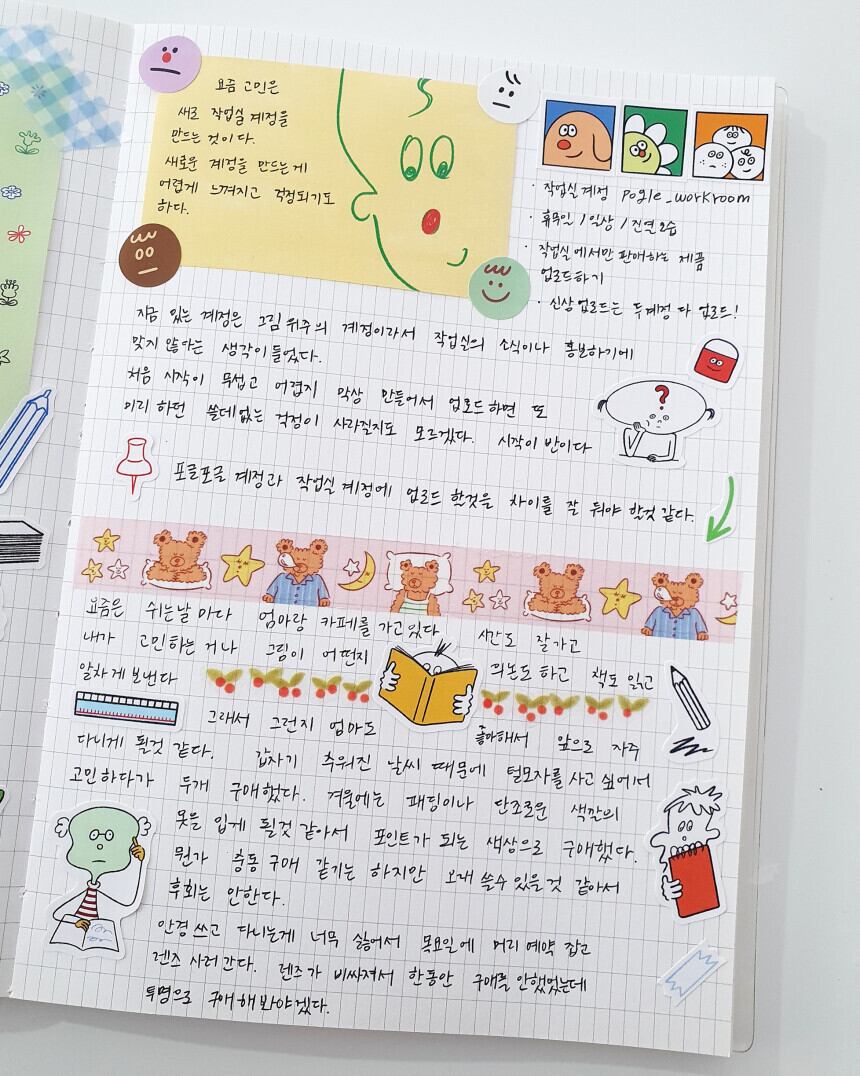 요즘 고민은
새로 작업실 계정을
만드는 것이다.
새로운 계정을 만드는게
어렵게 느껴지고 걱정되기도
하다.
· 작업실 계정 pogle_workroom
· 휴무일 / 일상 / 진열모습
· 작업실에서만 판매하는 제품
업로드하기
· 신상업로드는 두계정 다 업로드!
지금 있는 계정은 그림 위주의 계정이라서 작업실의 소식이나 홍보하기에
맞지 않아는 생각이 들었다.
처음 시작이 무섭고 어렵지 막상 만들어서 업로드하면 또
미리 하던 쓸데없는 걱정이 사라질지도 모르겠다. 시작이 반이다
?
포글포글 계정과 작업실 계정에 업로드 할것을 차이를 잘 둬야 할것 같다.
요즘은 쉬는날 마다 엄마랑 카페를 가고있다 시간도 잘가고
내가 고민하는 거나 그림이 어떤지 의논도 하고 책도 읽고
알차게 보낸다
그래서 그런지 엄마도 좋아해서 앞으로 자주
다니게 될것 같다. 갑자기 추워진 날씨 때문에 털모자를 사고 싶어서
고민하다가 두개 구매했다. 겨울에는 패딩이나 단조로운 색깔의
옷을 입게 될것 같아서 포인트가 되는 색상으로 구매했다.
뭔가 충동구매 같기는 하지만 오래 쓸수 있을것 같아서
후회는 안한다.
안경 쓰고 다니는게 너무 싫어서 목요일에 머리 예약 잡고
렌즈 사러 간다. 렌즈가 비싸져서 한동안 구매를 안했었는데
투명으로 구매해봐야겠다.